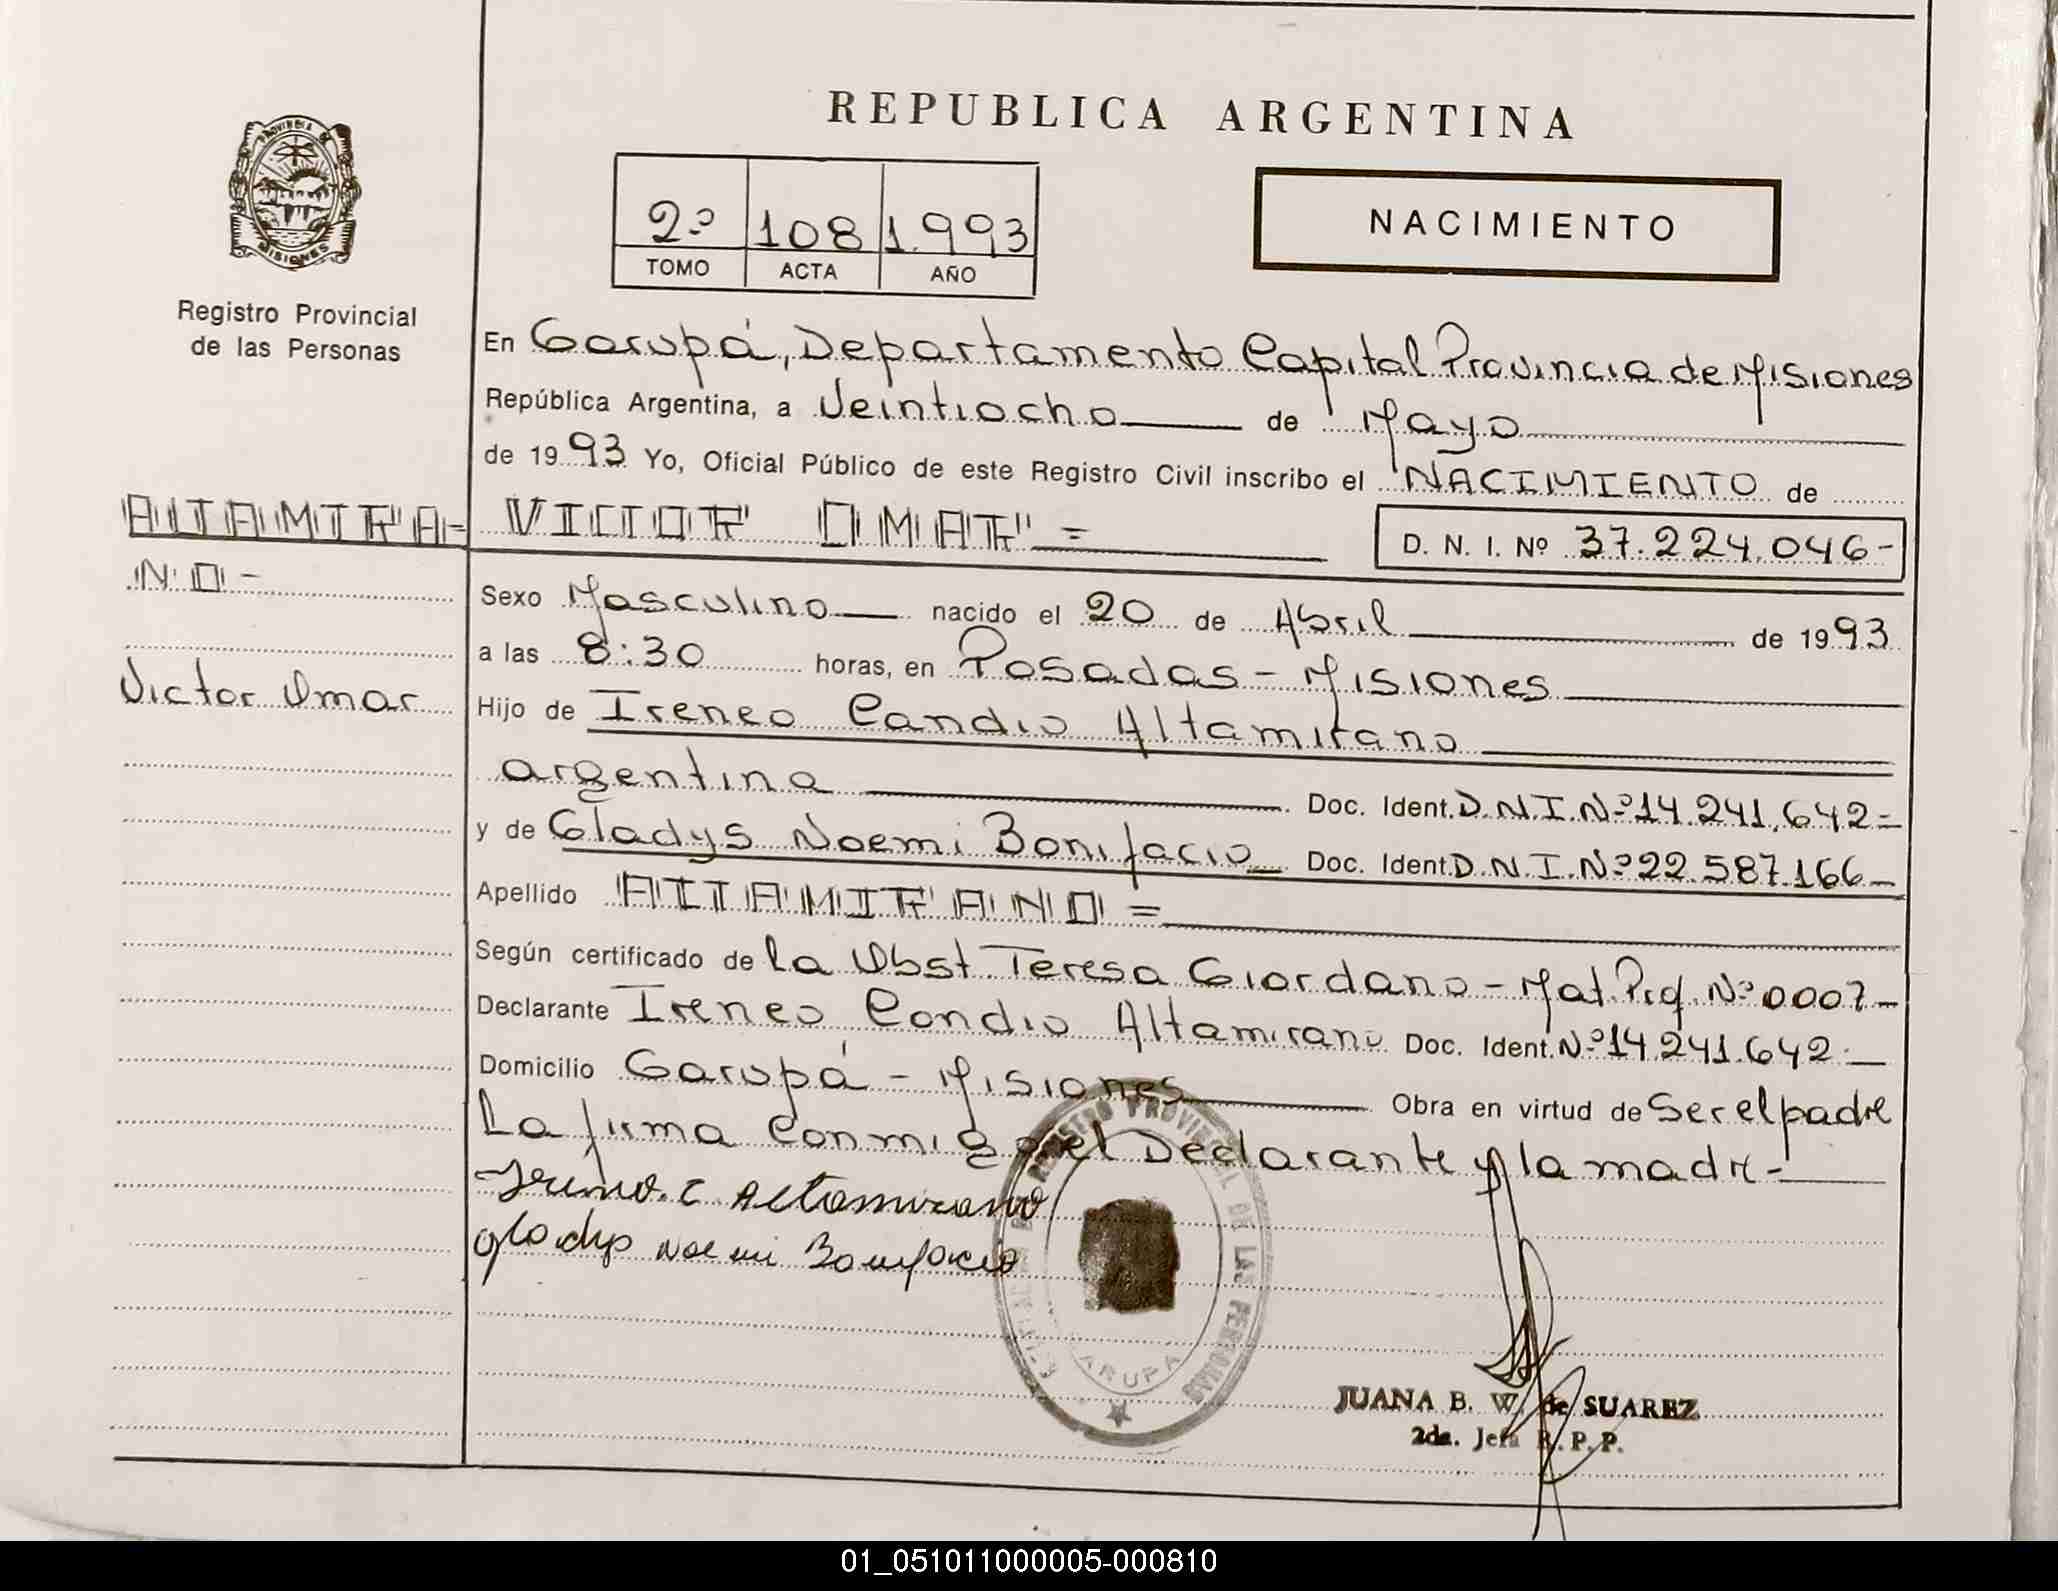 REPUBLICA ARGENTINA
PROVINCIA DE
MISIONES
Registro Provincial
de las Personas
2º 108 1.993
TOMO ACTA AÑO
NACIMIENTO
En Garupá, Departamento Capital Provincia de Misiones
República Argentina, a Veintiocho de Mayo
de 1993 Yo, Oficial Público de este Registro Civil inscribo el NACIMIENTO de
ALTAMIRA=
NO-
Victor Omar
VICTOR OMAR =
D. N. I. Nº 37.224.046-
Sexo Masculino nacido el 20 de Abril de 1993
a las 8:30 horas, en Posadas - Misiones
Hijo de Ireneo Candio Altamirano
argentina Doc. Ident. D.N.I.Nº 14.241.642=
y de Gladys Noemi Bonifacio Doc. Ident. D.N.I.Nº 22.587.166-
Apellido ALTAMIRANO =
Según certificado de la Obst. Teresa Giordano - Mat. Prof. Nº 0007-
Declarante Ireneo Candio Altamirano Doc. Ident. Nº 14.241.642.-
Domicilio Garupá - Misiones Obra en virtud de Ser el padre
La firma Conmigo el Declarante y la madre-
Ireneo. C Altamirano
Gladys Noemi Bonifacio
REGISTRO PROVINCIAL DE LAS PERSONAS
GARUPA
JUANA B. W. de SUAREZ
2da. Jefa R.P.P.
01_051011000005-000810